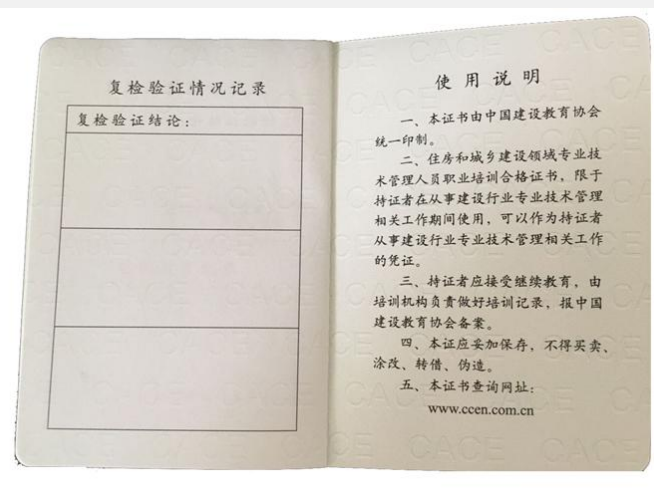 复检验证情况记录
复检验证结论：
使用说明
一、本证书由中国建设教育协会
统一印制。
二、住房和城乡建设领域专业技
术管理人员职业培训合格证书，限于
持证者在从事建设行业专业技术管理
相关工作期间使用，可以作为持证者
从事建设行业专业技术管理相关工作
的凭证。
三、持证者应接受继续教育，由
培训机构负责做好培训记录，报中国
建设教育协会备案。
四、本证应妥加保存，不得买卖、
涂改、转借、伪造。
五、本证书查询网址：
www.ccen.com.cn